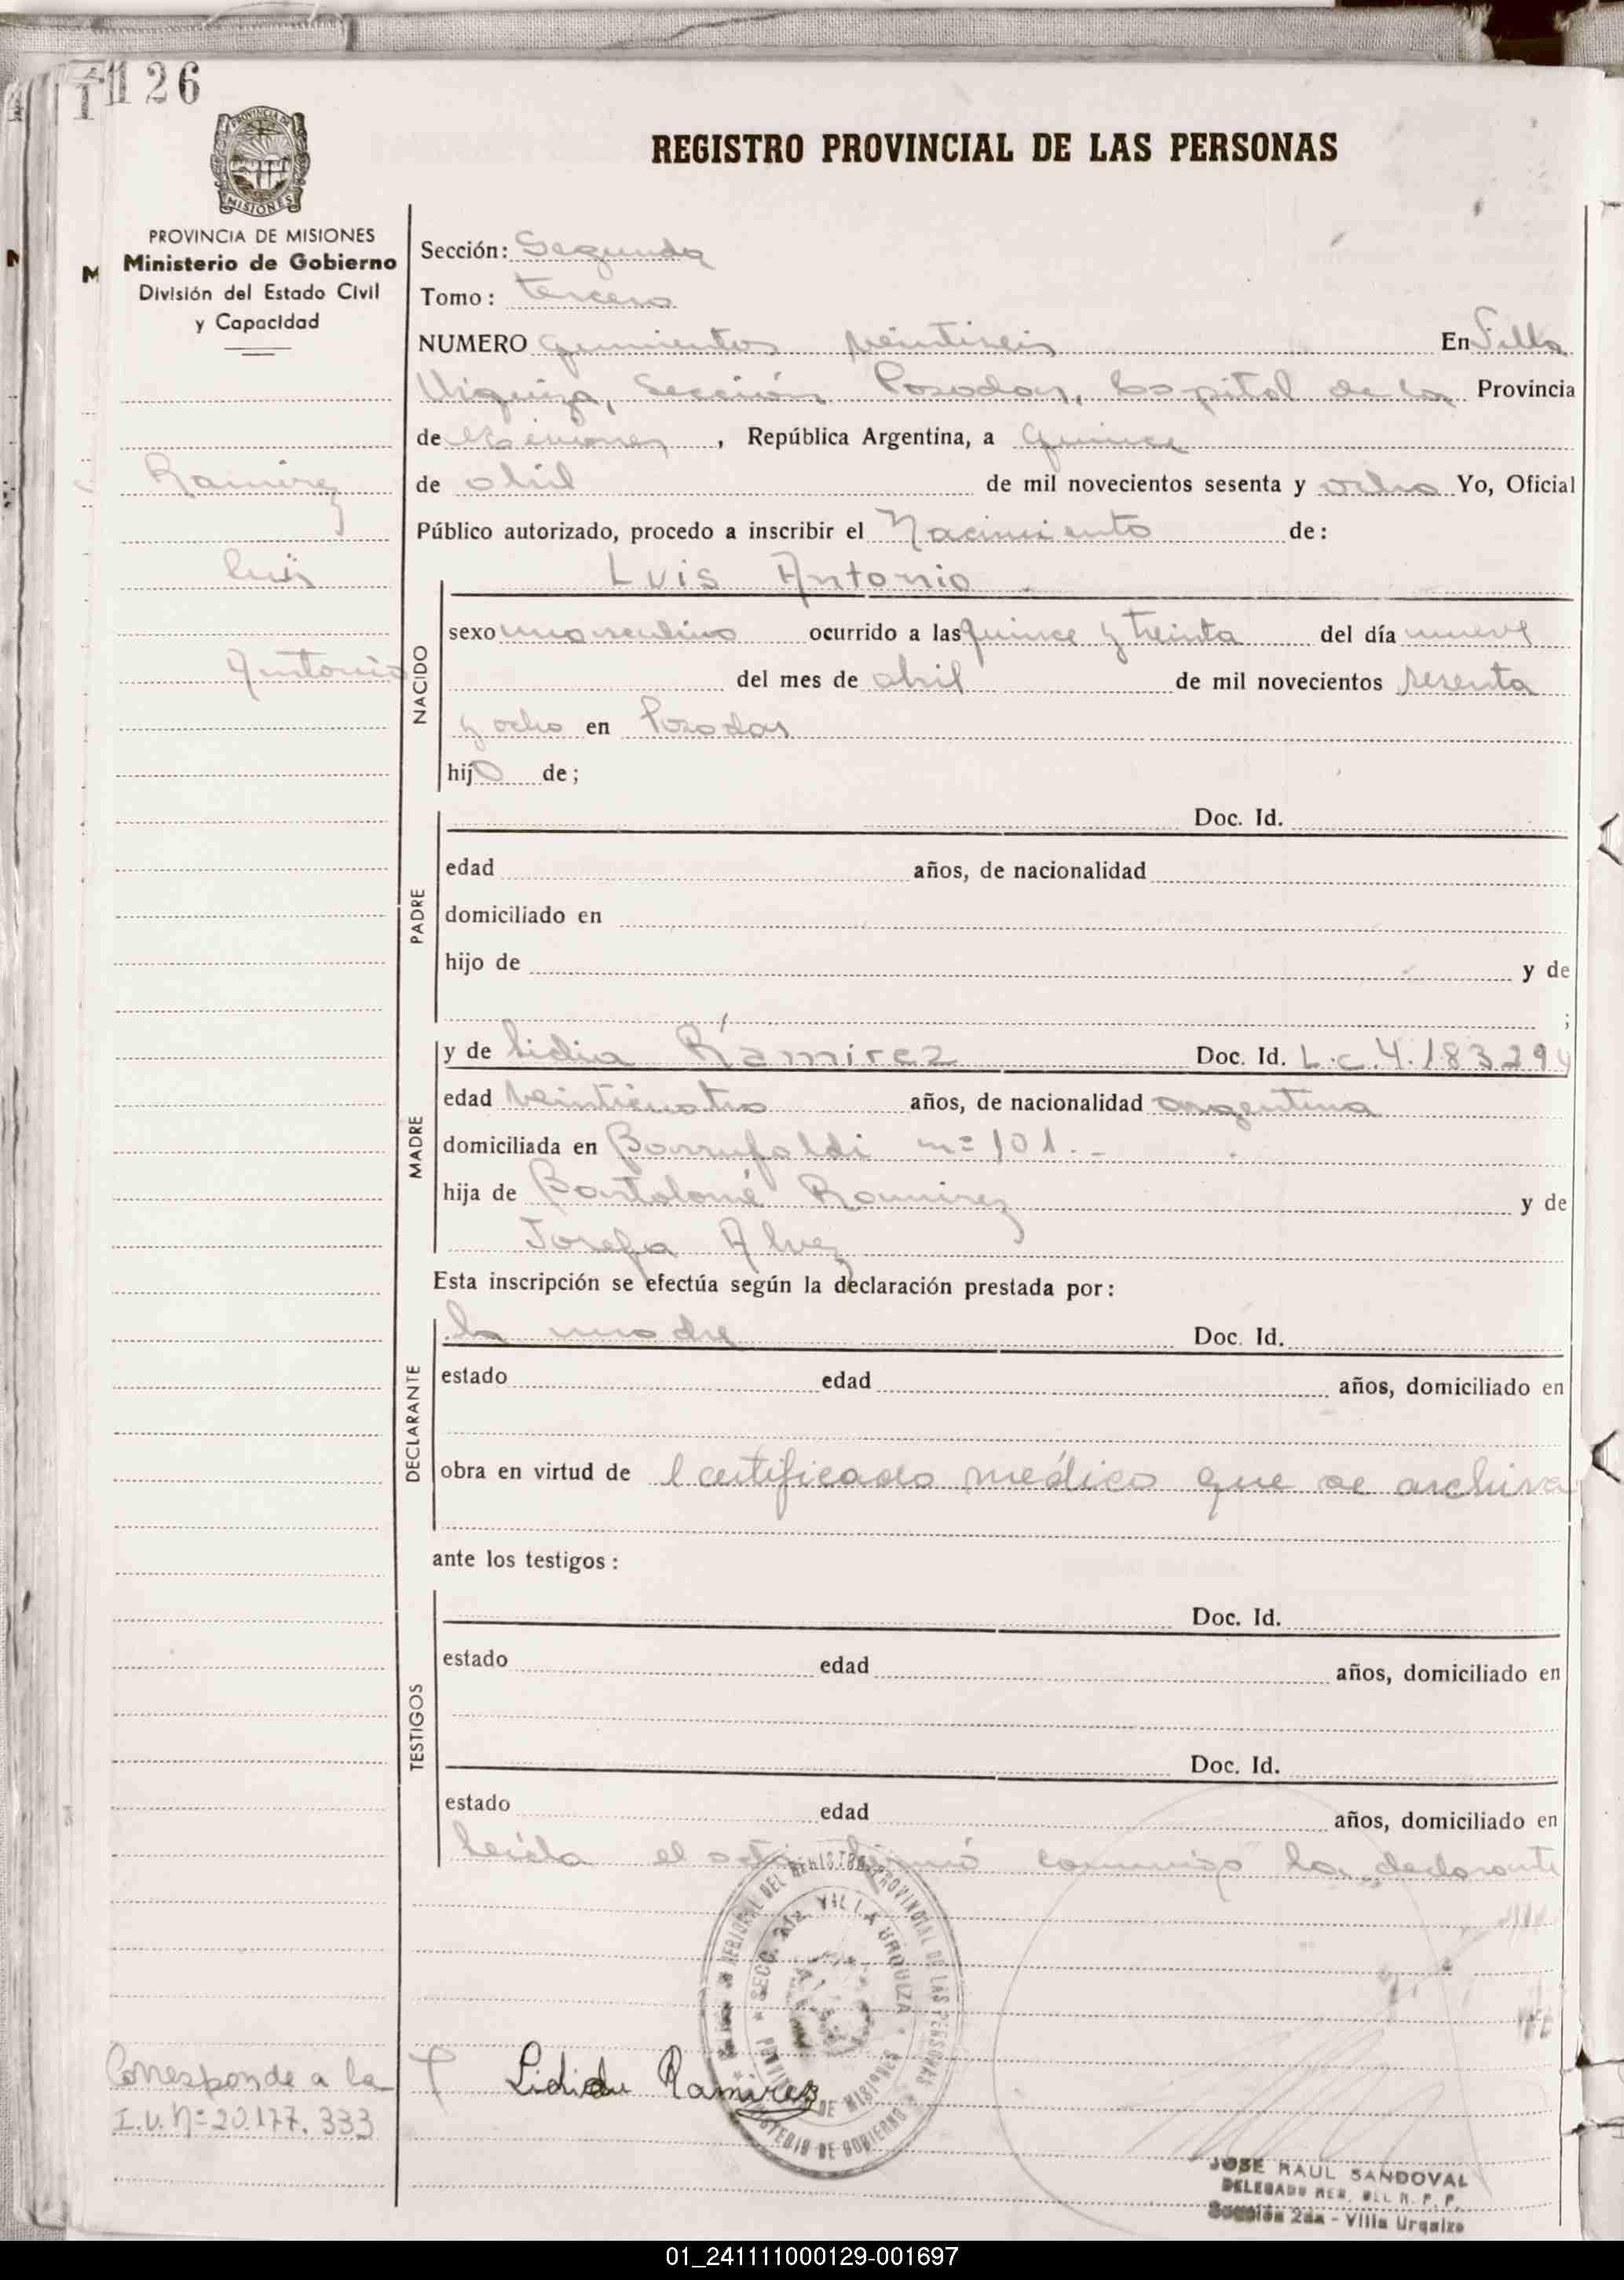 126
REGISTRO PROVINCIAL DE LAS PERSONAS
PROVINCIA DE MISIONES
MISIONES
PROVINCIA DE MISIONES
Ministerio de Gobierno
División del Estado Civil
y Capacidad
Ramirez
Luis
Antonio
Sección: Segunda
Tomo: tercero
NUMERO quinientos veintiseis En Villa
Urquiza, Sección Posadas, Capital de la Provincia
de Misiones, República Argentina, a quince
de abril de mil novecientos sesenta y ocho Yo, Oficial
Público autorizado, procedo a inscribir el Nacimiento de:
NACIDO
Luis Antonio
sexo masculino ocurrido a las quince y treinta del día nueve
del mes de abril de mil novecientos sesenta
y ocho en Posadas
hijo de;
PADRE
Doc. Id.
edad años, de nacionalidad
domiciliado en
hijo de y de
;
MADRE
y de Lidia Ramírez Doc. Id. L.c. 4.183294
edad veinticuatro años, de nacionalidad argentina
domiciliada en Borrufaldi n= 101.-
hija de Bartolomé Ramirez y de
Josefa Alvez
Esta inscripción se efectúa según la declaración prestada por:
DECLARANTE
la madre Doc. Id.
estado edad años, domiciliado en
obra en virtud de l certificado médico que se archiva
ante los testigos:
TESTIGOS
Doc. Id.
estado edad años, domiciliado en
Doc. Id.
estado edad años, domiciliado en
Leída el acta firmó conmigo la declarante
REGIONAL DEL REGISTRO PROVINCIAL DE LAS PERSONAS
SECC. 2da. VILLA URQUIZA
PROVINCIA DE MISIONES
MINISTERIO DE GOBIERNO
Lidia Ramirez
Corresponde a la
I.U. N= 20.177.333
JOSE RAUL SANDOVAL
DELEGADO REG. DEL R. P. P.
Sección 2da - Villa Urquiza
01_241111000129-001697